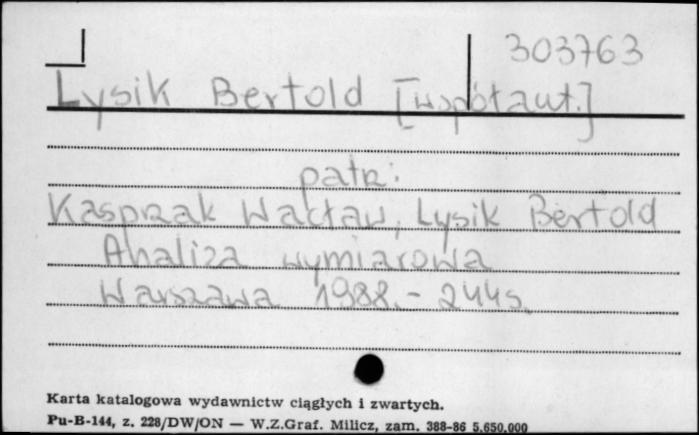 303763
Lysik Bertold [współaut.]
patrz:
Kasprzak Wacław, Lysik Bertold
Analiza wymiarowa
Warszawa 1988.- 244s.
Karta katalogowa wydawnictw ciągłych i zwartych.
Pu-B-144, z. 228/DW/ON — W.Z.Graf. Milicz, zam. 388-86 5.650.000